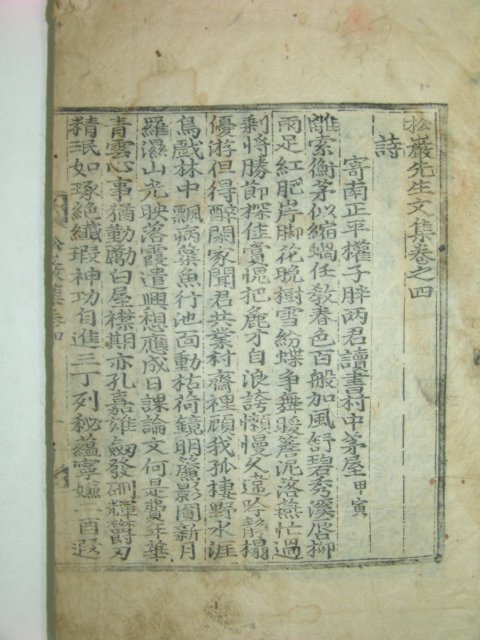 松巖先生文集卷之四
詩
寄南正平權子胖兩君讀書村中茅屋甲寅
離索衡茅似縮蝸任教春色百般加風舒碧秀溪唇柳
雨足紅肥岸脚花晩樹雪紛蝶爭舞暖簷泥落燕忙過
剩將勝節探佳賞愧把麁才自浪誇懶慢久違吟靜榻
優游但得醉閑家聞君共業村齋裡顧我孤棲野水涯
鳥戲林中飄病葉魚行池面動枯荷鏡明簾影圓新月
羅濕山光映落霞遣興想應成日課論文何是費年華
靑雲心事猶勤勵白屋襟期亦孔嘉雄劒發硎輝欝刃
精珉如琢絶纖瑕神功自進三丁列秘蘊寧嫌二酉遐